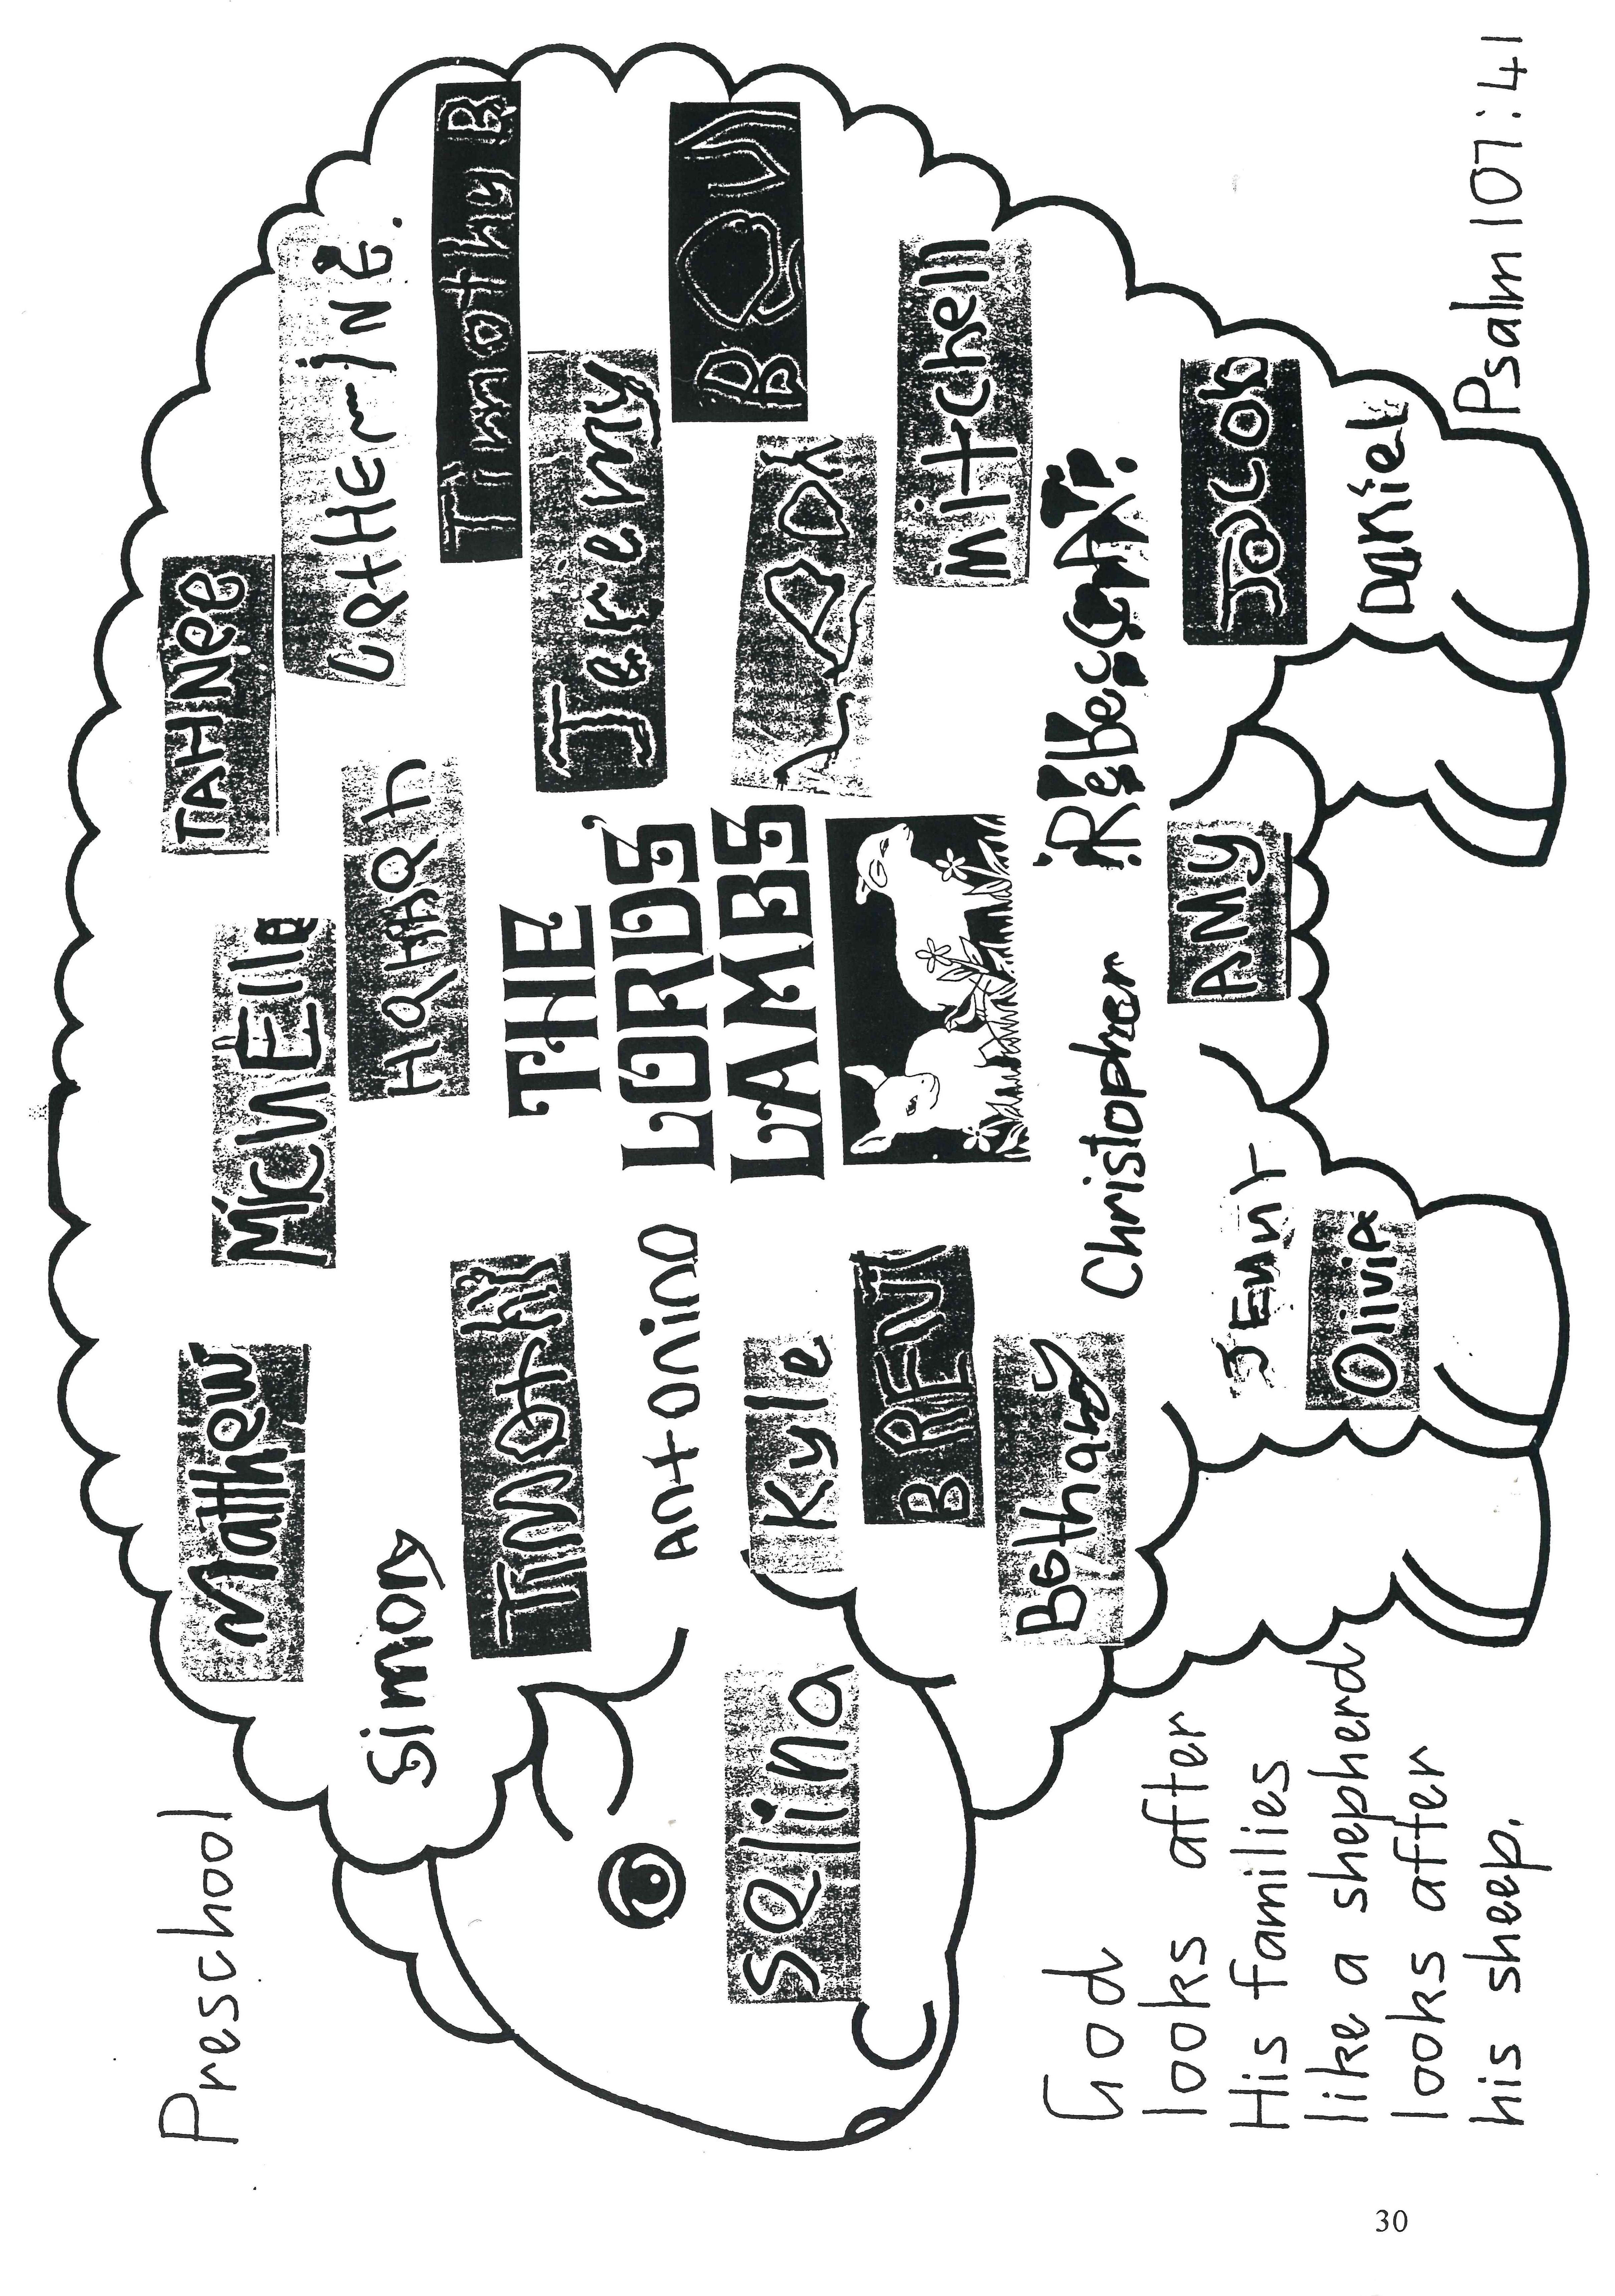 Preschool
Matthew
MicHElle
TAHNee
CatHeriNE.
Simon
TiMOtHY
HaNNah
Timothy B
THE
LORD'S
LAMBS
Jeremy
antonino
Selina
Kyle
BRENT
Mitchell
Bethany
Christopher
RebeccA
AMY
Jacob
JEnnY
Olivia
Daniel
God
looks after
His families
like a shepherd
looks after
his sheep.
Psalm 107:41
30